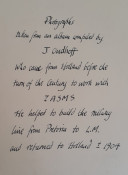 Photographs
taken from an album compiled by
J Oudhoff
Who came from Holland before the
turn of the century to work with
Z A S M S
He helped to build the railway
line from Pretoria to L.M.
and returned to Holland I 1904